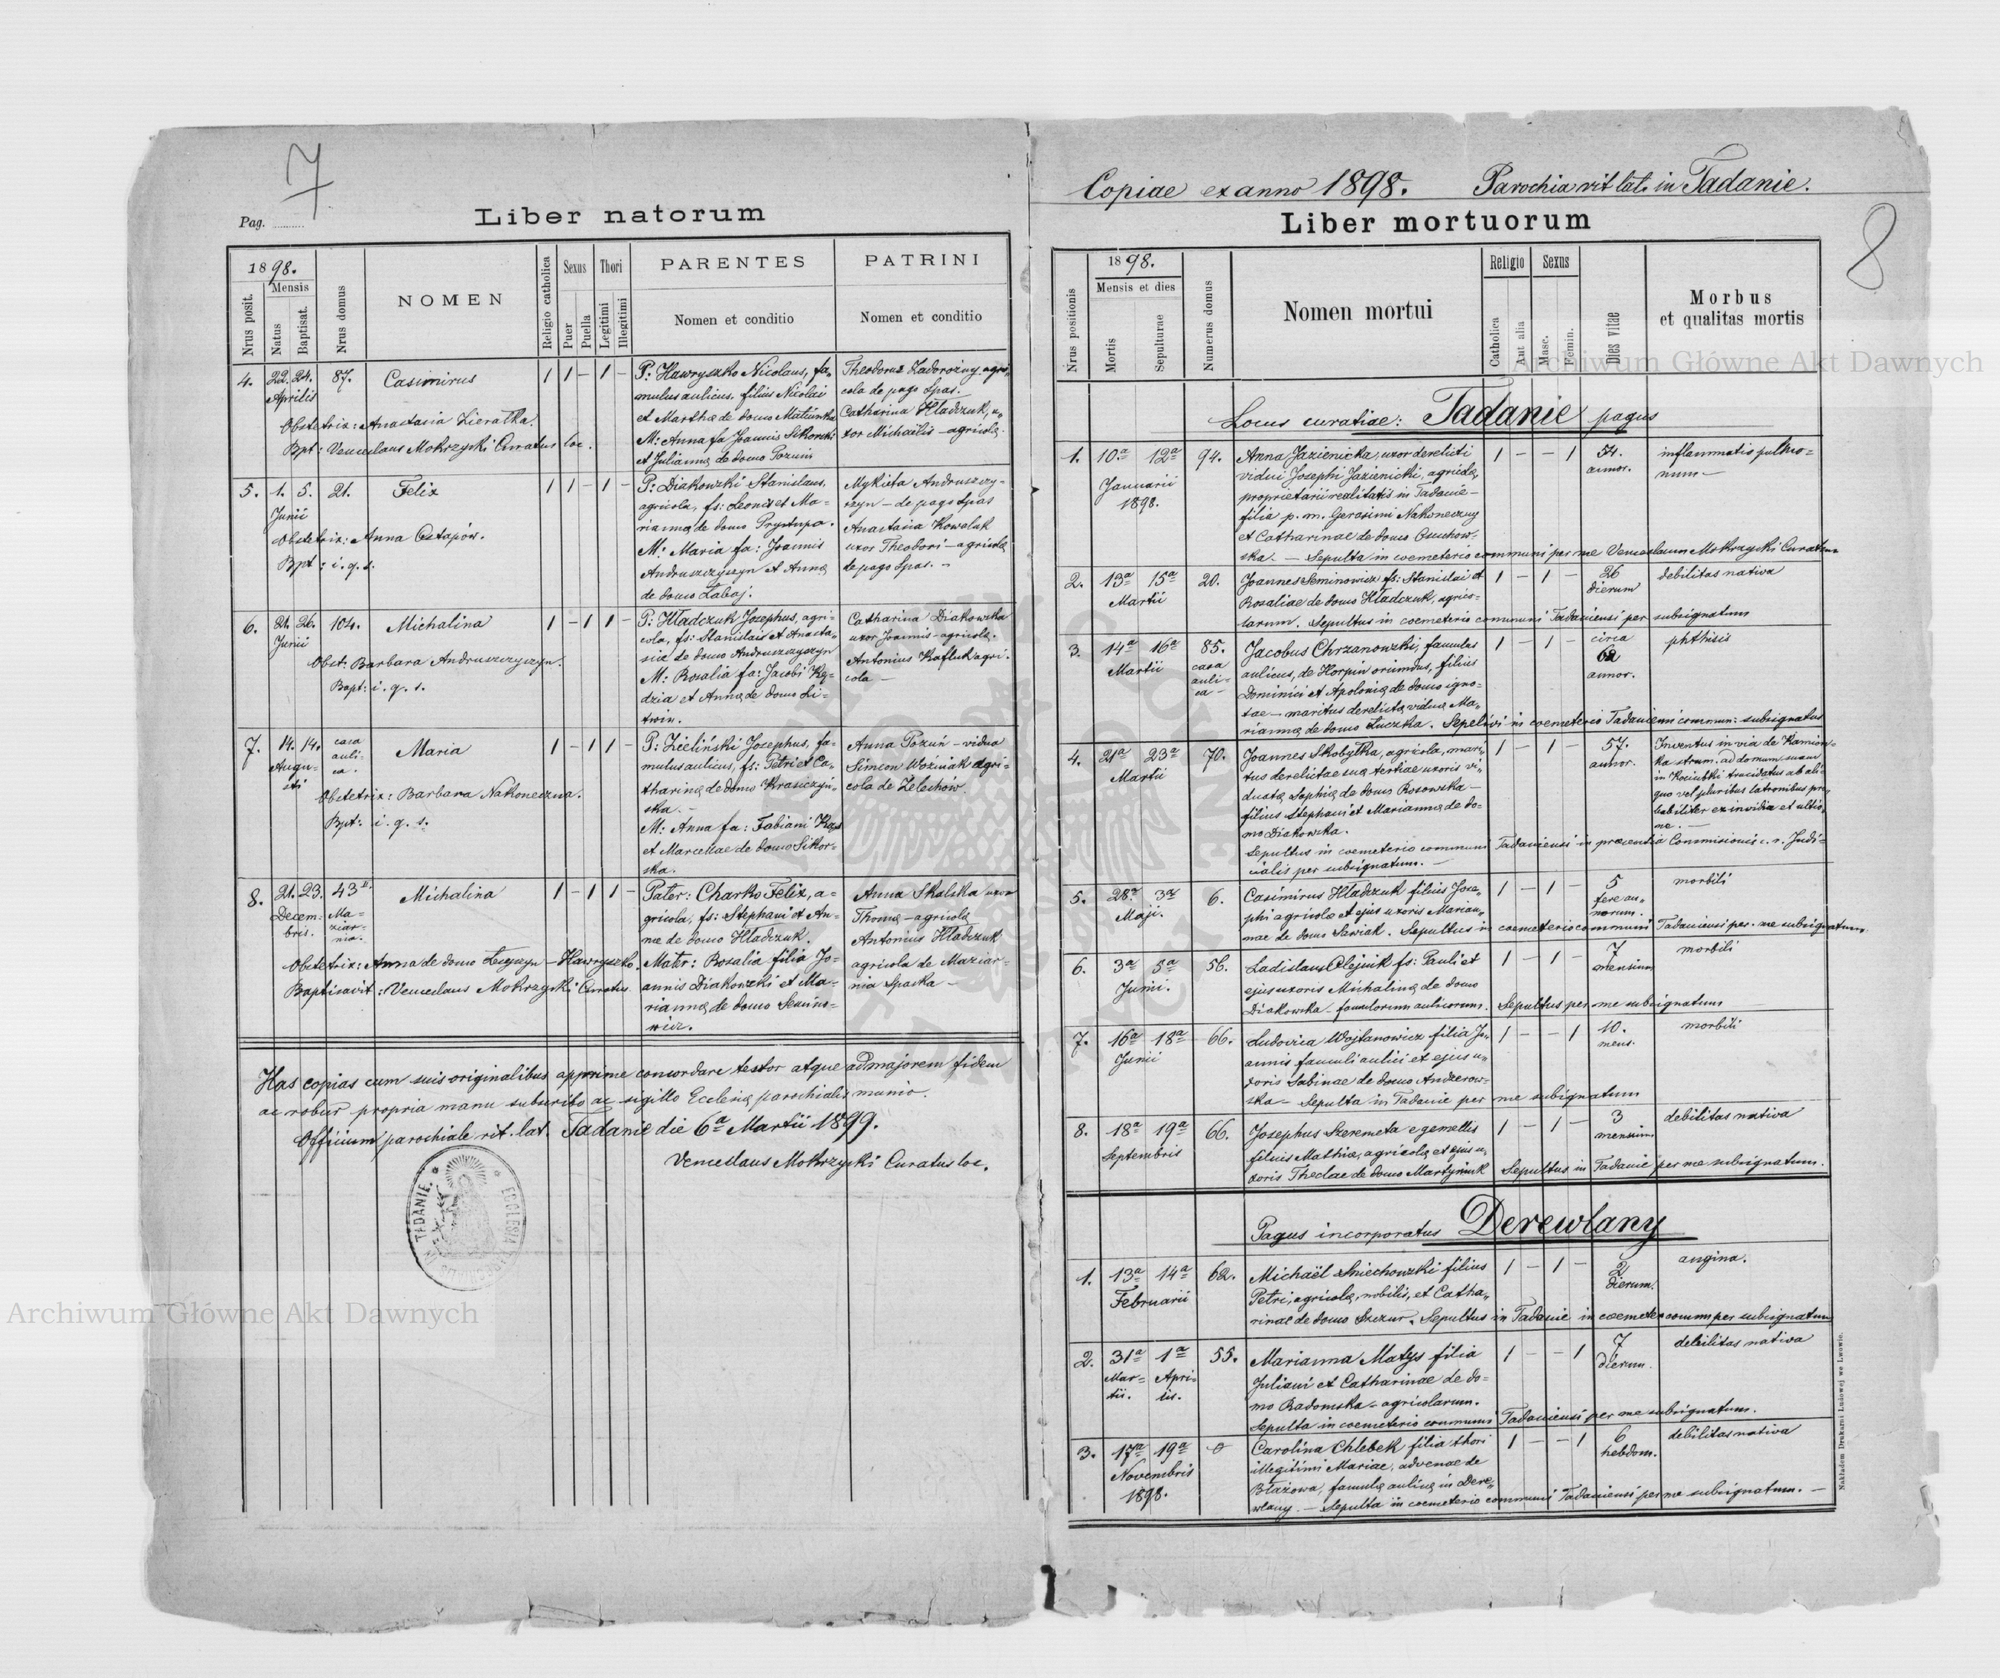 7
Pag.
Liber natorum
1898.
Mensis
Nrus posit.
Natus
Baptisat.
Nrus domus
NOMEN
Religio catholica
Sexus
Puer
Puella
Thori
Legitimi
Illegitimi
PARENTES
Nomen et conditio
PATRINI
Nomen et conditio
4. 22. 24. 87. Casimirus 1 1 – 1 –
Aprilis
Obstetrix: Anastasia Zierałka.
Bpt: Venceslaus Mokrzycki Curatus loc.
P: Hawryszko Nicolaus, fa-
mulus aulicus, filius Nicolai
et Marthæ de domo
M: Anna fa Joannis Sikorski
et Juliannæ de domo Pozuń
Theodorus Zadorożny agri-
cola de pago Spas.
Catharina Hładczuk, u-
xor Michaëlis – agricolæ.
5. 1. 5. 21. Felix 1 1 – 1 –
Junii
Obstetrix: Anna Ostapów.
Bpt: i. q. s.
P: Diakowski Stanislaus,
agricola, fs: Leonis et Ma-
riannæ de domo Prystupa.
M: Maria fa: Joannis
Andruszczyszyn et Annæ
de domo Łabaj.
Mykieta Andruszczy-
szyn – de pago Spas
Anastasia Kowaluk
uxor Theodori – agricolæ
de pago Spas. –
6. 21. 26. 104. Michalina 1 – 1 1 –
Junii
Obst: Barbara Andruszczyszyn.
Bapt: i. q. s.
P: Hładczuk Josephus, agri-
cola, fs: Stanislai et Anasta-
siæ de domo Andruszczyszyn
M: Rosalia fa: Jacobi Kę-
dzia et Annæ de domo Li-
twin.
Catharina Diakowska
uxor Joannis – agricolæ.
Antonius Kafluk agri-
cola –
7. 14. 14. casa Maria 1 – 1 1 –
Augu- auli-
sti ca.
Obstetrix: Barbara Nakoneczna.
Bpt: i. q. s.
P: Zieliński Josephus, fa-
mulus aulicus, fs: Petri et Ca-
tharinæ de domo Krasiczyń-
ska. –
M: Anna fa: Fabiani Kęs
et Marcellae de domo Sikor-
ska.
Anna Pozuń – vidua
Simeon Woźniak agri-
cola de Zelechów.
8. 21. 23. 43 Michalina 1 – 1 1 –
Decem- Ma-
bris. ziar-
nia.
Obstetrix: Anna de domo – Hawryszko.
Baptisavit: Venceslaus Mokrzycki Curatus
Pater: Charko Felix, a-
gricola, fs: Stephani et An-
nae de domo Hładczuk.
Mater: Rosalia filia Jo-
annis Diakowski et Ma-
riannæ de domo Semino-
wicz.
Anna Skalska uxor
Thomæ – agricolæ
Antonius Hładczuk
agricola de Maziar-
nia Spaska –
Has copias cum suis originalibus apprime concordare testor atque ad majorem fidem
ac robur propria manu subscribo ac sigillo Ecclesiæ parochialis munio.
Officium parochiale rit. lat. Tadanie die 6a Martii 1899.
Venceslaus Mokrzycki Curatus loc.
Copiae ex anno 1898. Parochia rit lat. in Tadanie.
Liber mortuorum
8
Nrus positionis
1898.
Mensis et dies
Mortis
Sepulturae
Numerus domus
Nomen mortui
Religio
Catholica
Aut alia
Sexus
Masc.
Femin.
Dies vitae
Morbus
et qualitas mortis
Locus curatiae: Tadanie pagus
1. 10.a 12a 94. Anna Jazienicka, uxor derelicti 1 – – 1 54. inflammatio pulmo-
Januarii vidui Josephi Jazienicki, agricolæ, annor. num. –
1898. proprietarii realitatis in Tadanie –
filia p. m. Gerasimi Nakoneczny
et Catharinae de domo Osuchow-
ska. – Sepulta in coemeterio communi per me Venceslaum Mokrzycki Curatum
2. 13a 15a 20. Joannes Seminowicz fs: Stanislai et 1 – 1 – 26 debilitas nativa
Martii Rosaliae de domo Hładczuk, agrico- dierum
larum. Sepultus in coemeterio communi Tadaniensi per subsignatum
3. 14a 16a 85. Jacobus Chrzanowski, famulus 1 – 1 – circa phthisis
Martii casa aulicus, de Horpin oriundus, filius 62
auli- Dominici et Apoloniæ de domo igno- annor.
ca – tae – maritus derelictæ viduæ Ma-
riannæ de domo Łuczka. Sepelivi in coemeterio Tadaniensi commun: subsignatus
4. 21a 23a 70. Joannes Skobyłka, agricola, mari- 1 – 1 – 57. Inventus in via de Kamion-
Martii tus derelictae suæ tertiae uxoris vi- annor. ka strum. ad domum suam
duatæ Sophiæ de domo Rosowska – in Kociubki trucidatus ab ali-
filius Stephani et Mariannæ de do- quo vel pluribus latronibus pro-
mo Diakowska. babiliter ex invidia et ultio-
ne. –
Sepultus in coemeterio communi Tadaniensi in praesentia Commissionis c. r. Judi-
cialis per subsignatum. –
5. 28.a 3a 6. Casimirus Hładczuk filius Jose- 1 – 1 – 5 morbili
Maji. phi agricolæ et ejus uxoris Marian- fere an-
nae de domo Sawiak. Sepultus in coemeterio communi Tadaniensi per me subsignatum. norum.
6. 3a 5a 56. Ladislaus Olejnik fs: Pauli et 1 – 1 – 7 morbili
Junii. ejus uxoris Michalinæ de domo mensium
Diakowska – famulorum aulicorum. Sepultus per me subsignatum
7. 16a 18a 66. Ludovica Wojtanowicz filia Jo- 1 – – 1 10. morbili
Junii annis famuli aulici et ejus u- mens.
xoris Sabinae de domo Andzerow-
ska – Sepulta in Tadanie per me subsignatum
8. 18a 19a 66. Josephus Szeremeta e gemellis 1 – 1 – 3 debilitas nativa
Septembris filius Mathiæ, agricolæ et ejus u- mensium
xoris Theclae de domo Martyniuk Sepultus in Tadanie per me subsignatum.
Pagus incorporatus Derewlany
1. 13a 14a 62. Michaël Śniechowski filius 1 – 1 – 2 angina.
Februarii Petri, agricolæ, nobilis, et Catha- dierum.
rinae de domo Szczur. Sepultus in Tadanie in coemeter. comm per subsignatum
2. 31a 1a 55. Marianna Matys filia 1 – – 1 7 debilitas nativa
Mar- Apri- Juliani et Catharinae de do- dierum.
tii. lis. mo Radomska – agricolarum.
Sepulta in coemeterio communi Tadaniensi per me subsignatum.
3. 17a 19a 0 Carolina Chlebek filia thori 1 – – 1 6 debilitas nativa
Novembris illegitimi Mariae, advenae de hebdom.
1898. Błażowa, famulæ aulicæ in Dere-
wlany. – Sepulta in coemeterio communi Tadaniensi per me subsignatum. –
Nakładem Drukarni Ludowej we Lwowie.
Archiwum Główne Akt Dawnych
Archiwum Główne Akt Dawnych